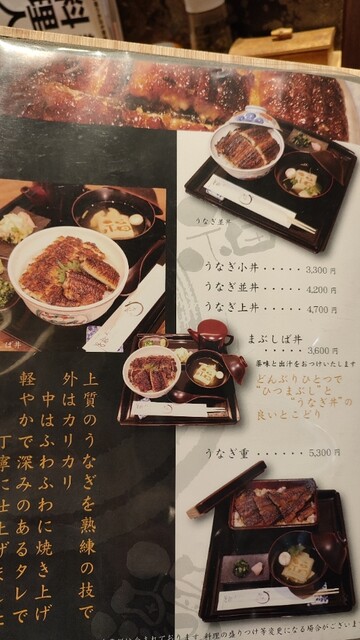 料理人
うなぎ並丼
うなぎ小丼・・・・・・3,300円
うなぎ並丼・・・・・・4,200円
うなぎ上丼・・・・・・4,700円
まぶしば丼
・・・・・3,600円
薬味と出汁をおつけいたします
どんぶりひとつで
"ひつまぶし"と
"うなぎ丼"の
良いとこどり
うなぎ重・・・・・・5,300円
上質のうなぎを熟練の技で
外はカリカリ
中はふわふわに焼き上げ
軽やかで深みのあるタレで
丁寧に仕上げました
ております。料理の盛りつけ等変更になる場合がございま